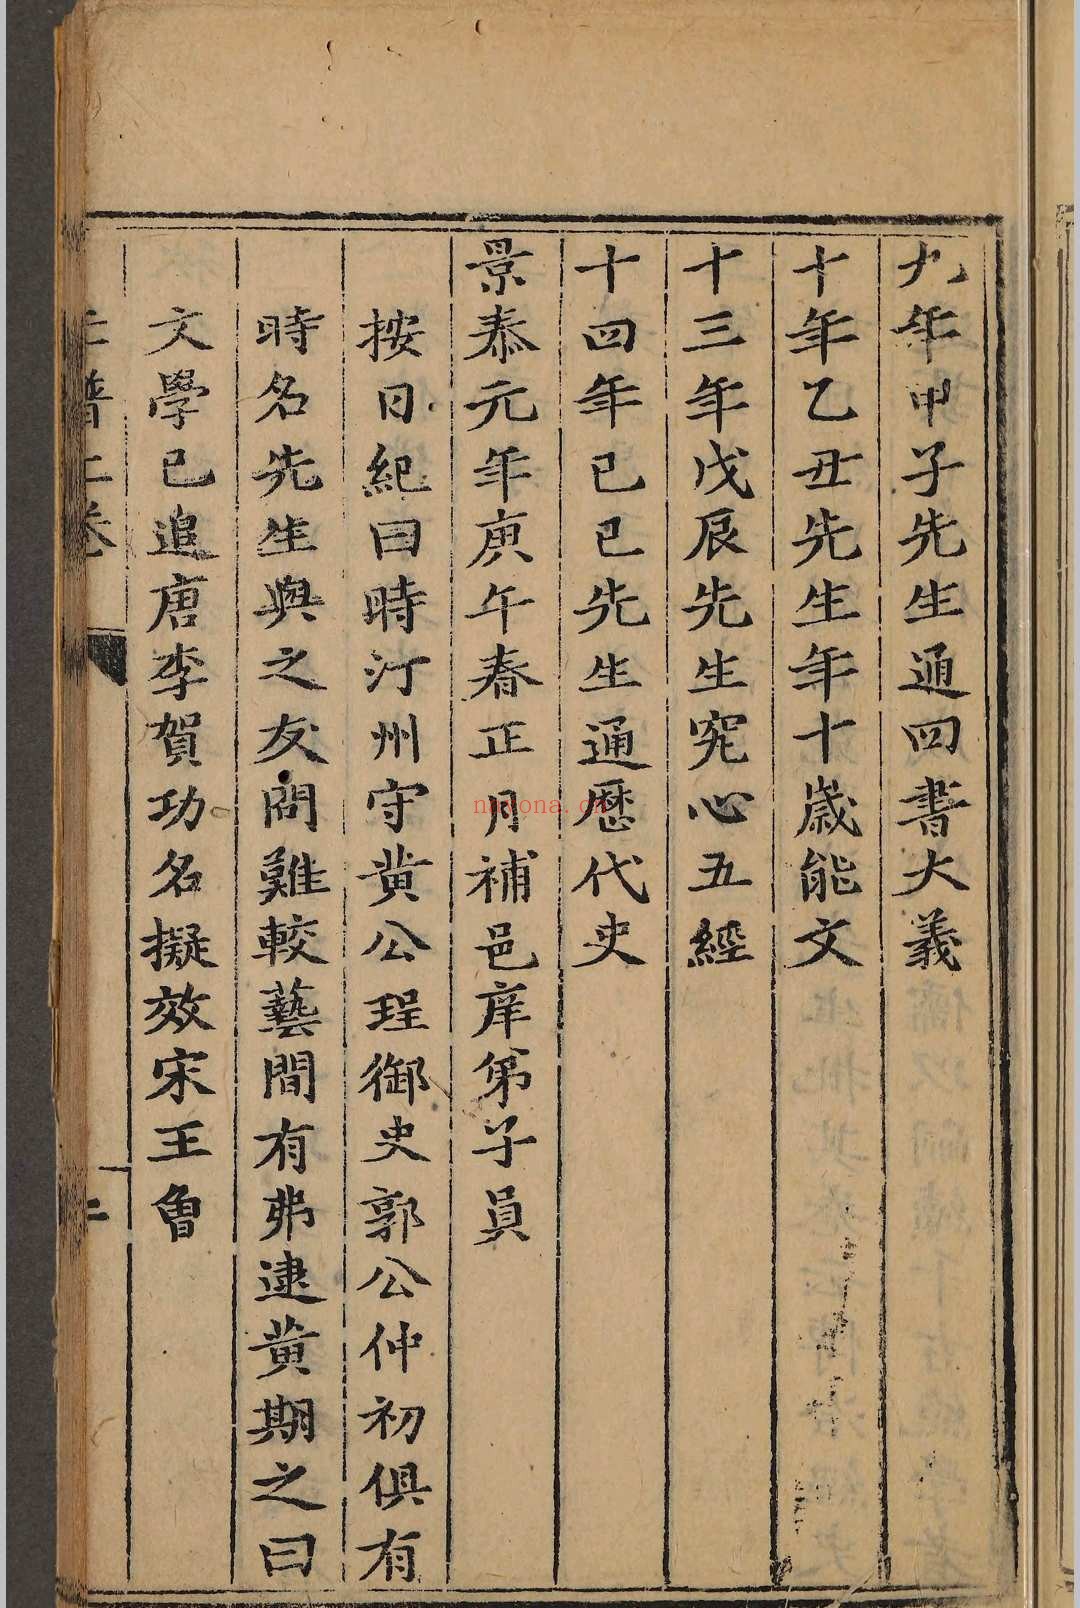 九年甲子先生通四書大義
十年乙丑先生年十歲能文
十三年戊辰先生究心五經
十四年已已先生通歷代史
景泰元年庚午春正月補邑庠弟子員
按日紀曰時汀州守黄公珵御史郭公仲初俱有
時名先生與之友問難較藝間有弗逮黄期之曰
文學已追唐李賀功名擬效宋王魯